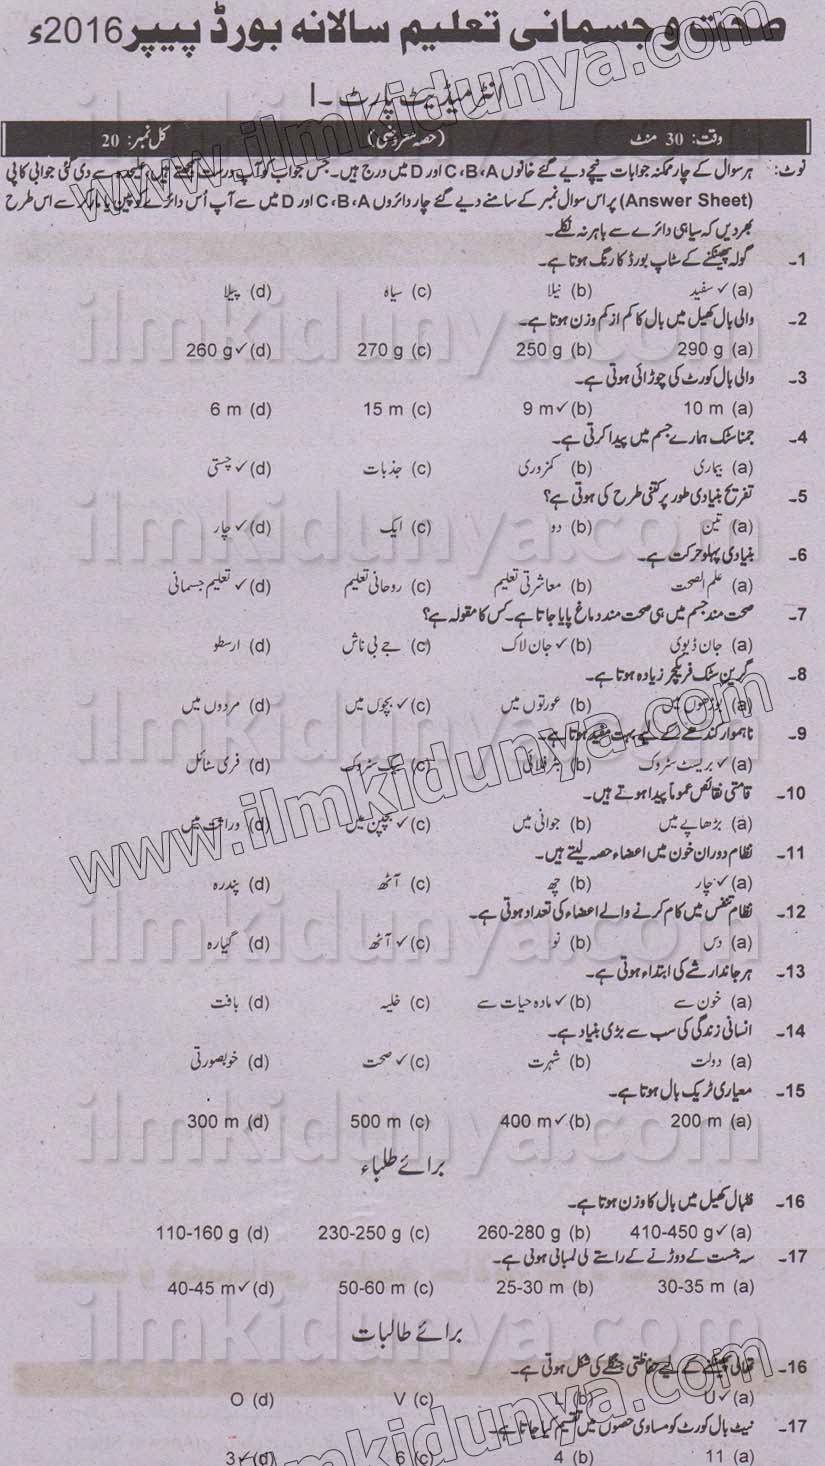 صحت و جسمانی تعلیم سالانہ بورڈ پیپر 2016ء
انٹرمیڈیٹ پارٹ ۔ I
وقت: 30 منٹ (حصہ معروضی) کل نمبر: 20
نوٹ: ہر سوال کے چار ممکنہ جوابات نیچے دیے گئے خانوں A، B، C اور D میں درج ہیں۔ جس جواب کو آپ درست سمجھتے ہیں، علیحدہ سے دی گئی جوابی کاپی
(Answer Sheet) پر اس سوال نمبر کے سامنے دیے گئے چار دائروں A، B، C اور D میں سے آپ اُس دائرے کو پین یا مارکر سے اس طرح
بھر دیں کہ سیاہی دائرے سے باہر نہ نکلے۔
1۔ گولہ پھینکنے کے سٹاپ بورڈ کا رنگ ہوتا ہے۔
(a) ✓ سفید (b) نیلا (c) سیاہ (d) پیلا
2۔ والی بال کھیل میں بال کا کم از کم وزن ہوتا ہے۔
(a) 290 g (b) 250 g (c) 270 g (d) ✓ 260 g
3۔ والی بال کورٹ کی چوڑائی ہوتی ہے۔
(a) 10 m (b) ✓ 9 m (c) 15 m (d) 6 m
4۔ جمناسٹک ہمارے جسم میں پیدا کرتی ہے۔
(a) بیماری (b) کمزوری (c) جذبات (d) ✓ چستی
5۔ تفریح بنیادی طور پر کتنی طرح کی ہوتی ہے؟
(a) تین (b) دو (c) ایک (d) ✓ چار
6۔ بنیادی پہلو حرکت ہے۔
(a) علم الصحت (b) معاشرتی تعلیم (c) روحانی تعلیم (d) ✓ تعلیم جسمانی
7۔ صحت مند جسم میں ہی صحت مند دماغ پایا جاتا ہے۔ کس کا مقولہ ہے؟
(a) جان ڈیوی (b) ✓ جان لاک (c) جے بی ناش (d) ارسطو
8۔ گرین سٹک فریکچر زیادہ ہوتا ہے۔
(a) بوڑھوں میں (b) عورتوں میں (c) ✓ بچوں میں (d) مردوں میں
9۔ ناہموار کندھے کے لیے بہت مفید ہوتا ہے۔
(a) ✓ بریسٹ سٹروک (b) بٹرفلائی (c) بیک سٹروک (d) فری سٹائل
10۔ قامتی نقائص عموماً پیدا ہوتے ہیں۔
(a) بڑھاپے میں (b) جوانی میں (c) ✓ بچپن میں (d) وراثت میں
11۔ نظام دوران خون میں اعضاء حصہ لیتے ہیں۔
(a) ✓ چار (b) چھ (c) آٹھ (d) پندرہ
12۔ نظام تنفس میں کام کرنے والے اعضاء کی تعداد ہوتی ہے۔
(a) دس (b) نو (c) ✓ آٹھ (d) گیارہ
13۔ ہر جاندار شے کی ابتداء ہوتی ہے۔
(a) خون سے (b) ✓ مادہ حیات سے (c) خلیہ (d) بافت
14۔ انسانی زندگی کی سب سے بڑی بنیاد ہے۔
(a) دولت (b) شہرت (c) ✓ صحت (d) خوبصورتی
15۔ معیاری ٹریک بال ہوتا ہے۔
(a) 200 m (b) ✓ 400 m (c) 500 m (d) 300 m
برائے طلباء
16۔ فٹبال کھیل میں بال کا وزن ہوتا ہے۔
(a) ✓ 410-450 g (b) 260-280 g (c) 230-250 g (d) 110-160 g
17۔ سہ جست کے دوڑنے کے راستے کی لمبائی ہوتی ہے۔
(a) 30-35 m (b) 25-30 m (c) 50-60 m (d) ✓ 40-45 m
برائے طالبات
16۔ تھالی پھینکنے کے لیے حفاظتی جنگلے کی شکل ہوتی ہے۔
(a) ✓ U (b) L (c) V (d) O
17۔ نیٹ بال کورٹ کو مساوی حصوں میں تقسیم کیا جاتا ہے۔
(a) 11 (b) 4 (c) 6 (d) ✓ 3
www.ilmkidunya.com
www.ilmkidunya.com
ilmkidunya.com
ilmkidunya.com
ilmkidunya.com
ilmkidunya.com
ilmkidunya.com
ilmkidunya.com
ilmkidunya.com
ilmkidunya.com